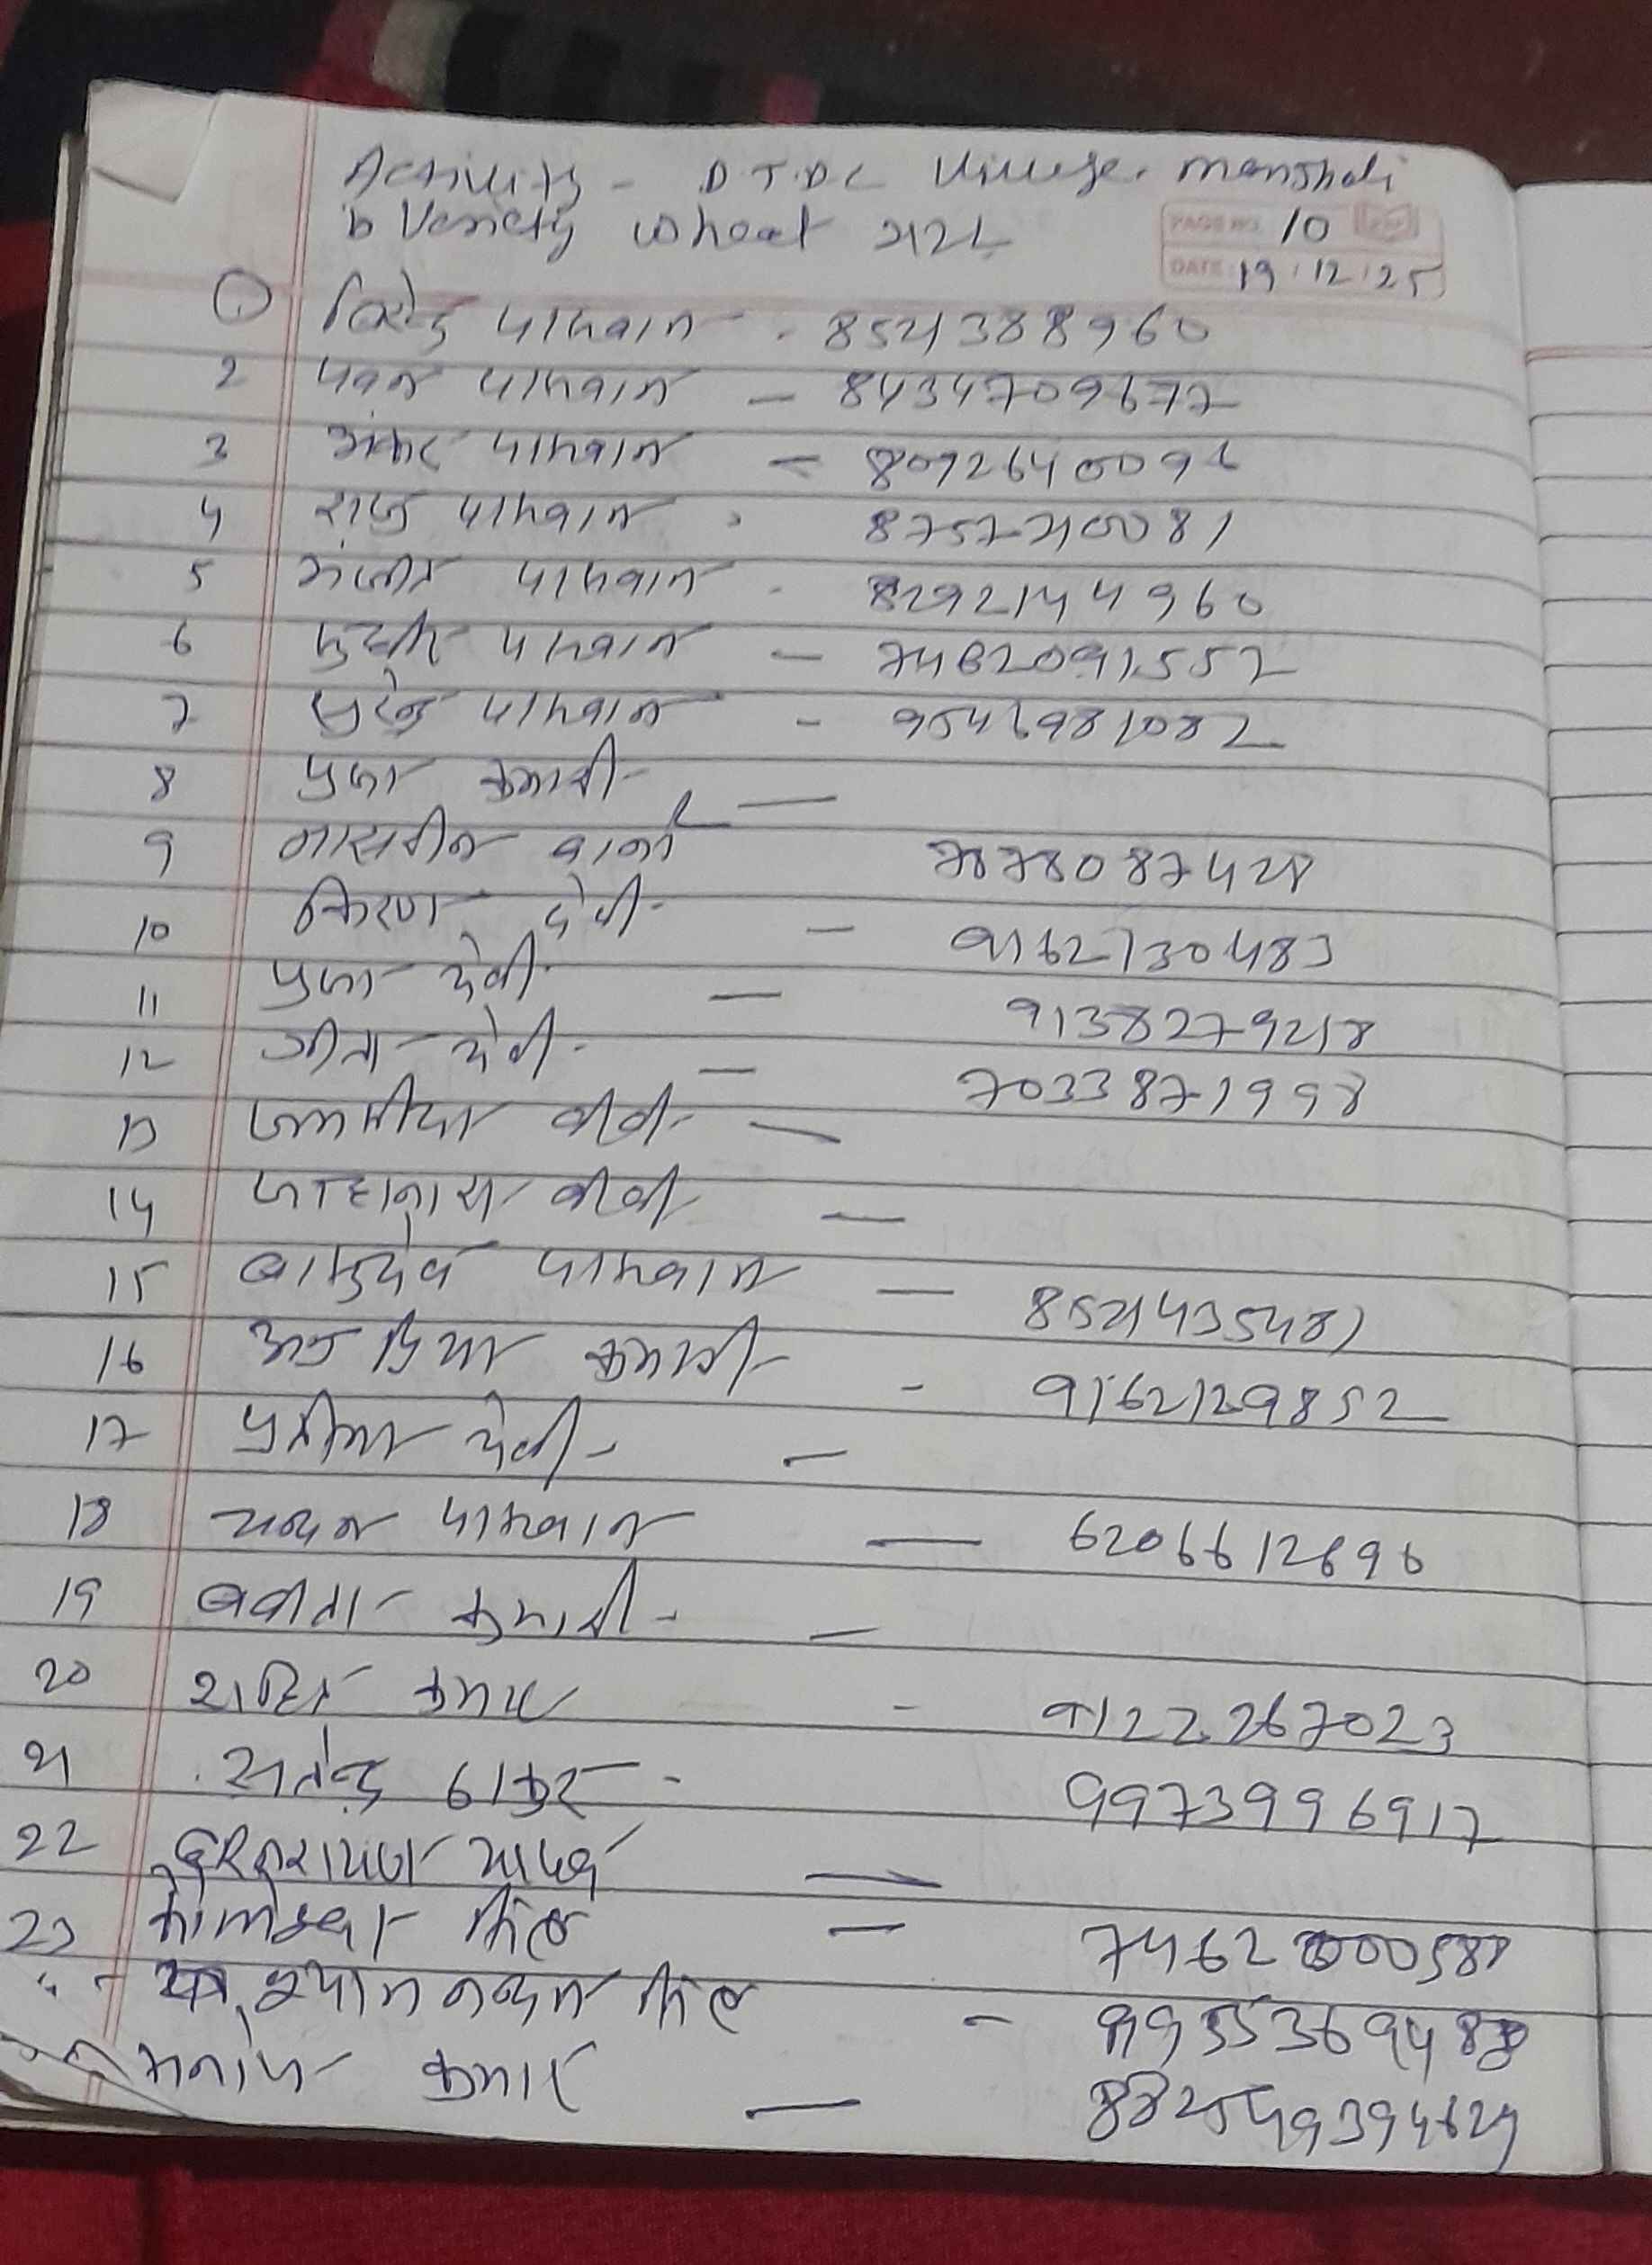 Activity - D.T.D.C Village. manjholi
b Variety wheat
PAGE NO. 10
DATE: 19/12/25
① विरेन्द्र पासवान - 8521388960
2 पवन पासवान - 8434709677
3 अंकित पासवान - 8092640096
4 राजु पासवान - 8757210081
5 मंजीत पासवान - 8292144960
6 सुधीर पासवान - 7482091552
7 सुरेन्द्र पासवान - 9546981082
8 पुजा कुमारी -
9 नासरीन बानो 7878087428
10 किरण देवी - 9162730483
11 पुजा देवी - 9138279218
12 गीता देवी - 7033871998
13 बीबी -
14 बीबी -
15 बासुदेव पासवान - 8521435481
16 प्रिया कुमारी - 9162129852
17 देवी -
18 चन्दन पासवान - 6206612696
19 बबीता कुमारी -
20 रोहित कुमार - 9122267023
21 सतेन्द्र ठाकुर - 9973996917
22 हरिनारायण यादव -
23 सिंह - 7462000588
श्याम नन्दन सिंह - 9955369488
मनोज कुमार -